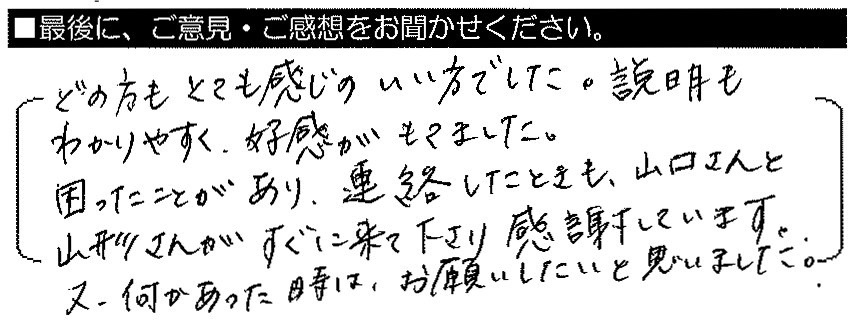 ■最後に、ご意見・ご感想をお聞かせください。
どの方もとても感じの いい方でした。説明も
わかりやすく、好感がもてました。
困ったことがあり、連絡したときも、山口さんと
山形さんがすぐに来て下さり感謝しています。
又、何かあった時は、お願いしたいと思いました。